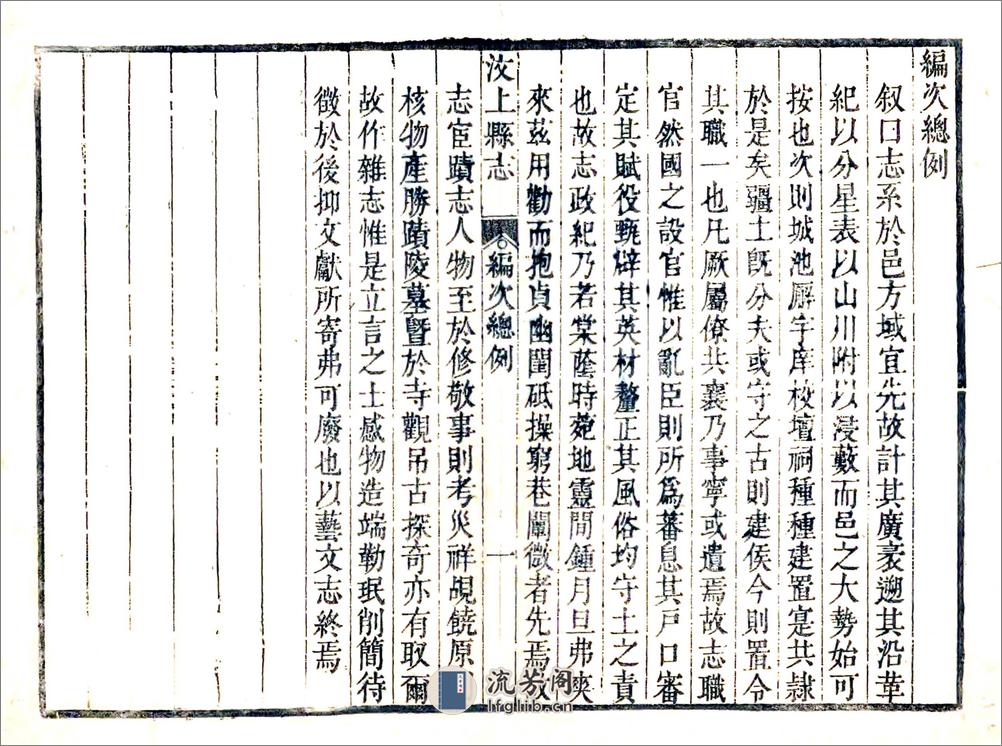 編次總例
叙曰志系於邑方域宜先故計其廣袤遡其沿革
紀以分星表以山川附以浸藪而邑之大勢始可
按也次則城池廨宇庠校壇祠種種建置寔共隷
於是矣疆土旣分夫或守之古則建侯今則置令
其職一也凡厥屬僚共襄乃事寧或遺焉故志職
官然國之設官惟以亂臣則所爲蕃息其戸口審
定其賦役甄辟其英材釐正其風俗均守土之責
也故志政紀乃若棠蔭時菀地靈間鍾月旦弗爽
來茲用勸而抱貞幽閨砥操窮巷闡微者先焉故
汶上縣志
編次總例
一
志宦蹟志人物至於修敬事則考災祥覘饒原
核物產勝蹟陵墓暨於寺觀吊古探奇亦有取爾
故作雜志惟是立言之士感物造端勒珉削簡待
徵於後抑文獻所寄弗可廢也以藝文志終焉
流芳阁
lfglib.cn